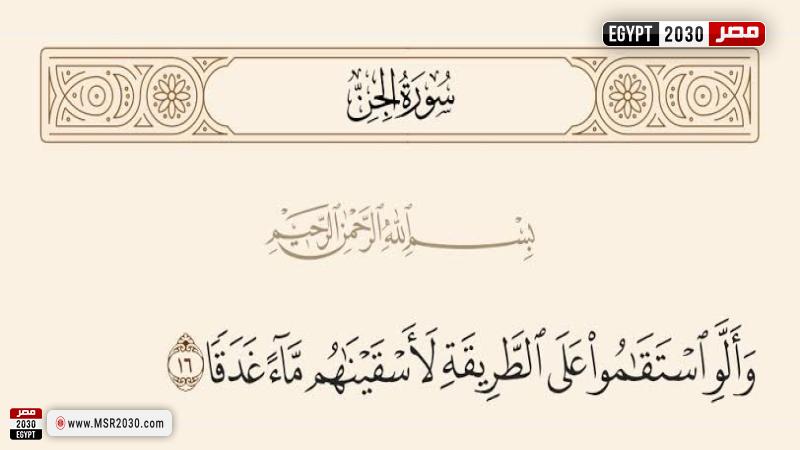 EGYPT 2030 مصر
سُورَةُ الجِنِّ
بِسْمِ اللَّهِ الرَّحْمَٰنِ الرَّحِيمِ
وَأَلَّوِ ٱسْتَقَٰمُوا۟ عَلَى ٱلطَّرِيقَةِ لَأَسْقَيْنَٰهُم مَّآءً غَدَقًا ١٦
مصر
2030
EGYPT
www.MSR2030.com